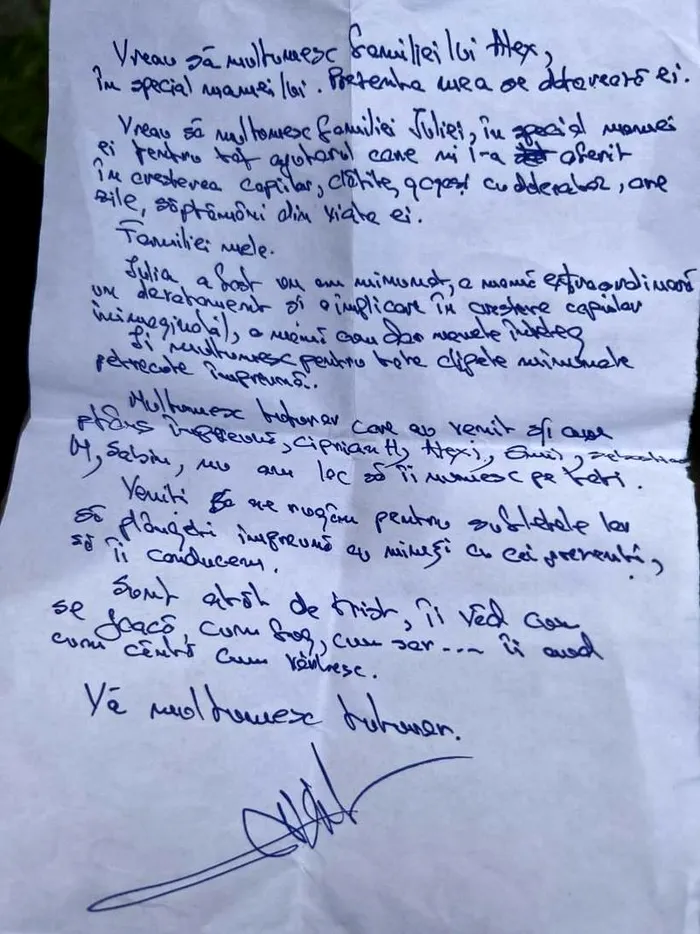 Vreau să multumesc familiei lui Alex,
în special mamei lui. Prezenta mea se datorează ei.
Vreau să multumesc familiei Iuliei, în special mamei
ei pentru tot ajutorul care mi l-a oferit
în cresterea copiilor, clătite, gogosi cu, are
zile, săptămâni din viata ei.
Familiei mele.
Iulia a fost un om minunat, o mamă extraordinară
un devotament si o implicare în crestere copiilor
inimaginabilă, o mamă cum doar numele înteleg
Îi multumesc pentru tote clipele minunate
petrecute împreună.
Multumesc tuturor care au venit si au
plâns împreună, Ciprian H, Alexi, Emil, Sebastian
M, Sabin, nu am loc să îi numesc pe toti.
Veniti să ne rugăm pentru sufletele lor
să plângeti împreună cu mine si cu cei prezenti,
să îi conducem.
Sunt atât de trist, îi văd cum
se joacă, cum fug, cum sar.... îi aud
cum cântă cum vorbesc.
Vă multumesc tuturor.